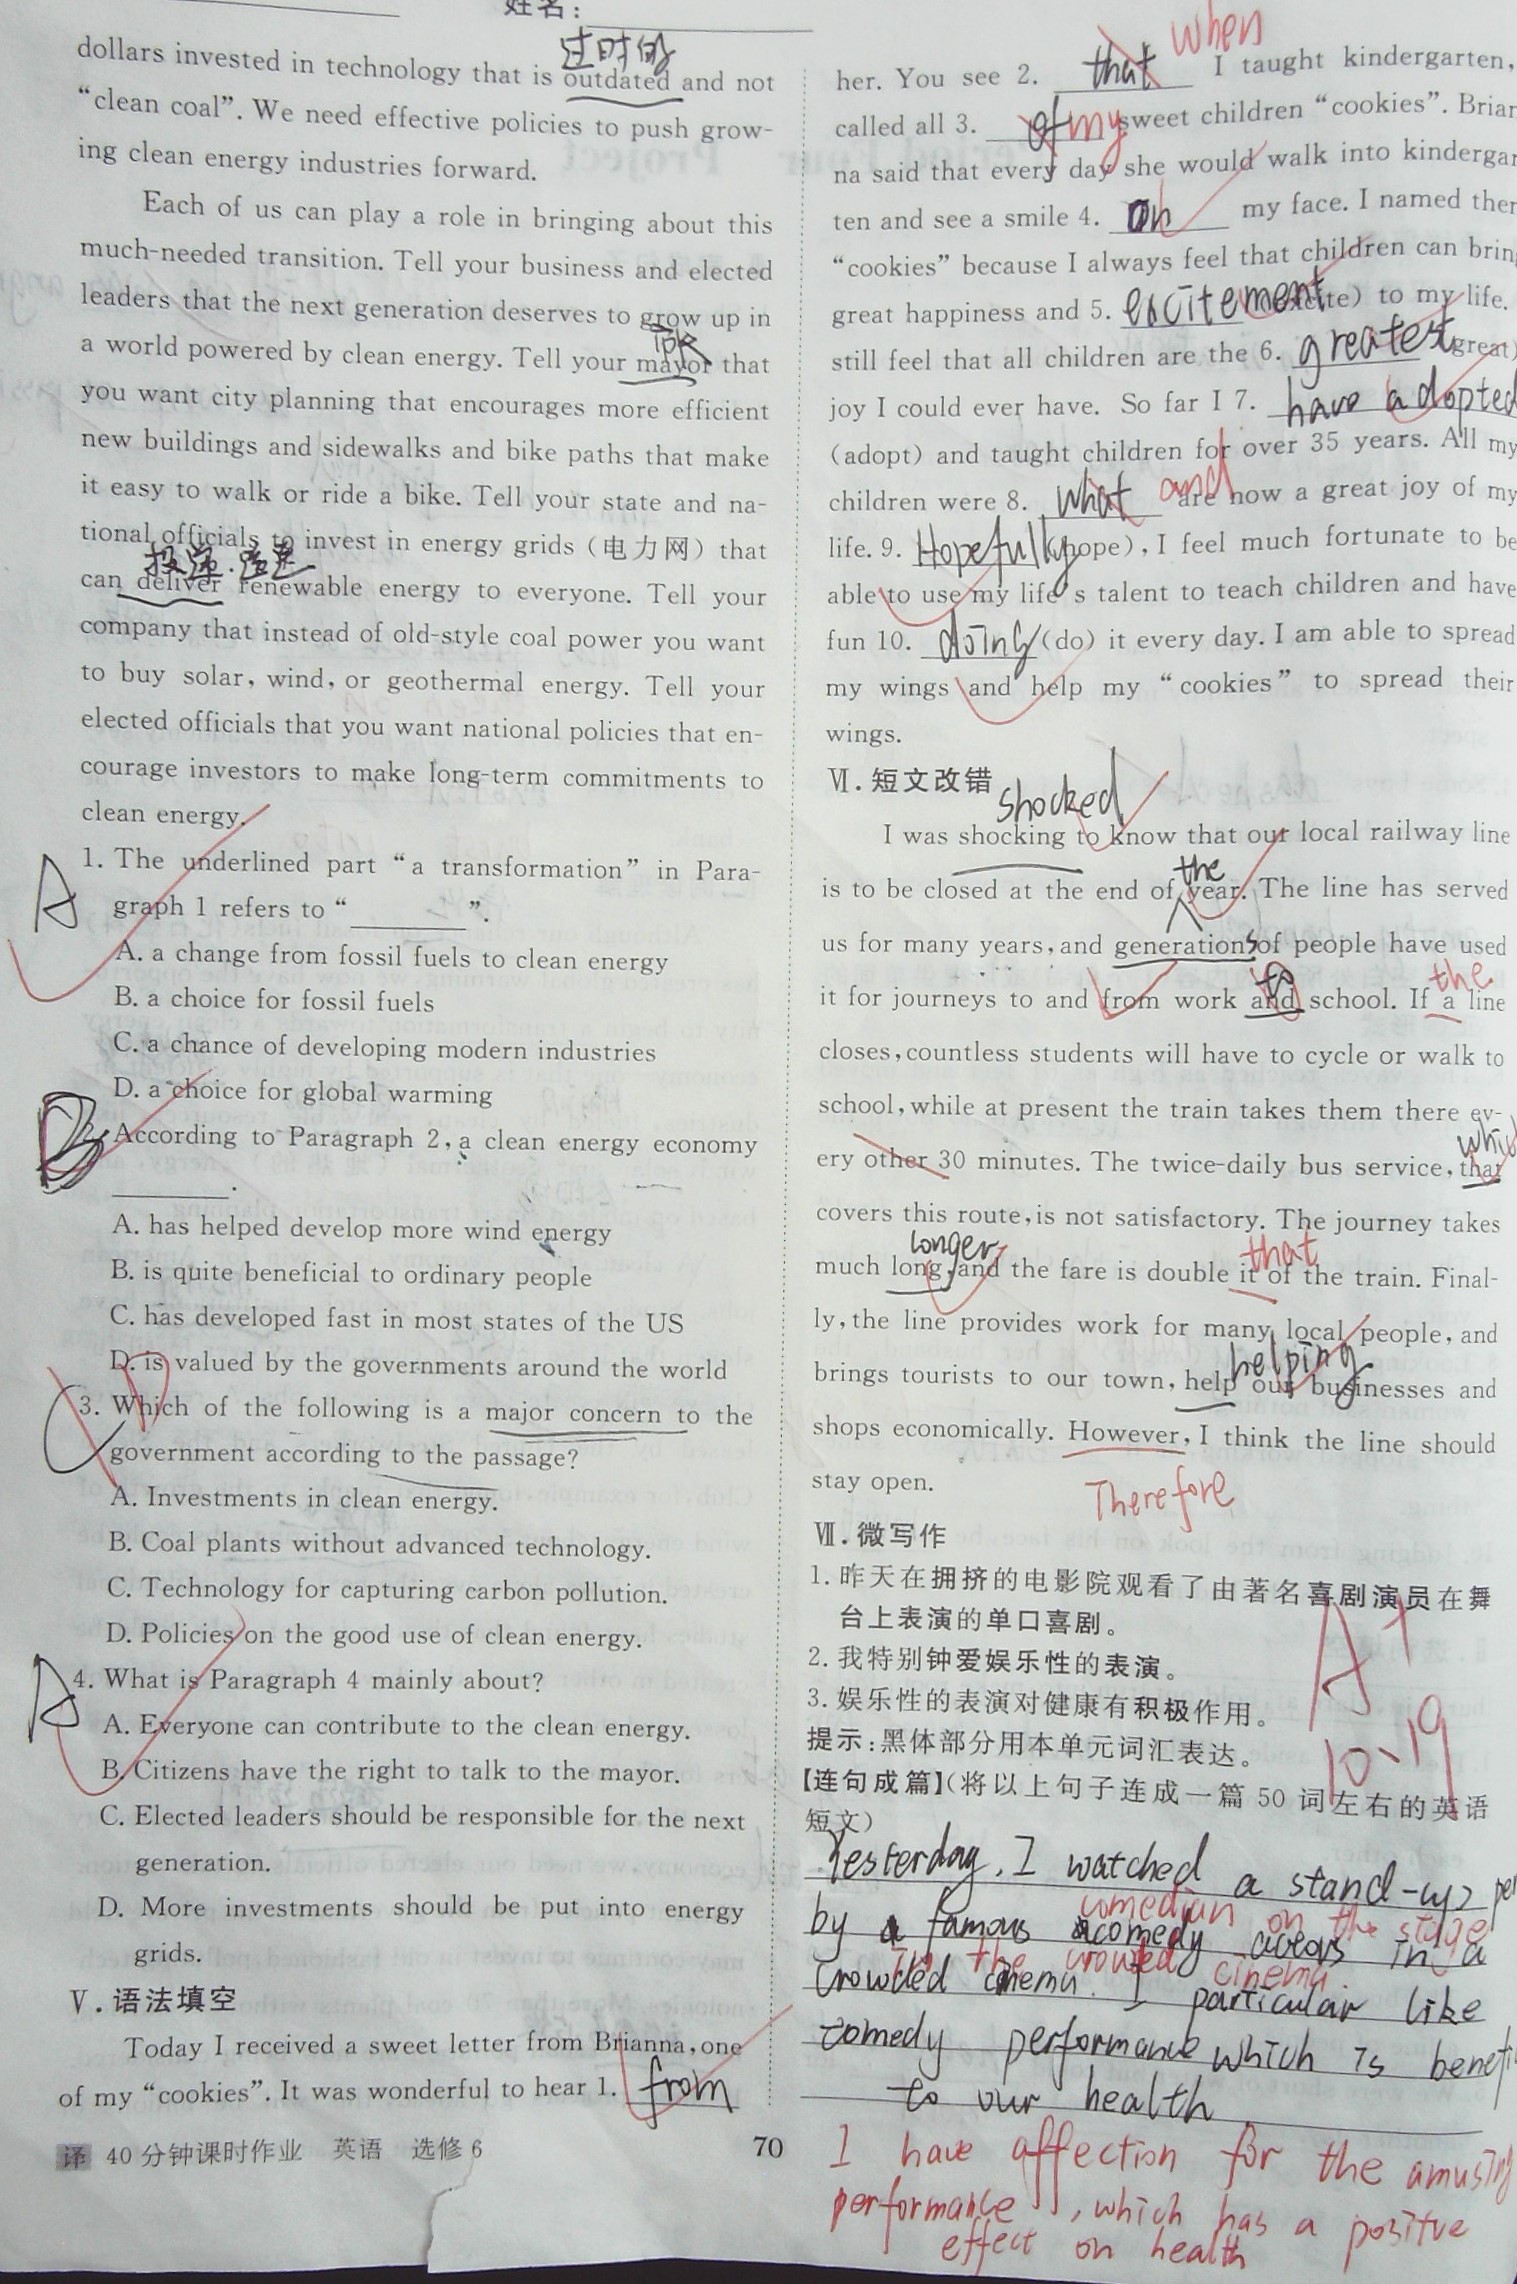 姓名:
过时的
dollars invested in technology that is outdated and not
“clean coal”. We need effective policies to push grow-
ing clean energy industries forward.
Each of us can play a role in bringing about this
much-needed transition. Tell your business and elected
leaders that the next generation deserves to grow up in
a world powered by clean energy. Tell your mayor that
you want city planning that encourages more efficient
new buildings and sidewalks and bike paths that make
it easy to walk or ride a bike. Tell your state and na-
tional officials to invest in energy grids (电力网) that
can deliver renewable energy to everyone. Tell your
company that instead of old-style coal power you want
to buy solar, wind, or geothermal energy. Tell your
elected officials that you want national policies that en-
courage investors to make long-term commitments to
clean energy.
A
1. The underlined part “a transformation” in Para-
graph 1 refers to “ ”.
A. a change from fossil fuels to clean energy
B. a choice for fossil fuels
C. a chance of developing modern industries
D. a choice for global warming
B
According to Paragraph 2, a clean energy economy
.
A. has helped develop more wind energy
B. is quite beneficial to ordinary people
C. has developed fast in most states of the US
D. is valued by the governments around the world
C D
3. Which of the following is a major concern to the
government according to the passage?
A. Investments in clean energy.
B. Coal plants without advanced technology.
C. Technology for capturing carbon pollution.
D. Policies on the good use of clean energy.
A
4. What is Paragraph 4 mainly about?
A. Everyone can contribute to the clean energy.
B. Citizens have the right to talk to the mayor.
C. Elected leaders should be responsible for the next
generation.
D. More investments should be put into energy
grids.
Ⅴ.语法填空
Today I received a sweet letter from Brianna, one
of my “cookies”. It was wonderful to hear 1. from
译 40分钟课时作业 英语 选修6
70
when
her. You see 2. that I taught kindergarten,
called all 3. of my sweet children “cookies”. Brian
na said that every day she would walk into kindergar
ten and see a smile 4. on my face. I named them
“cookies” because I always feel that children can bring
great happiness and 5. excitement (excite) to my life.
still feel that all children are the 6. greatest (great)
joy I could ever have. So far I 7. have adopted
(adopt) and taught children for over 35 years. All my
children were 8. what and are now a great joy of my
life. 9. Hopefully (hope), I feel much fortunate to be
able to use my life's talent to teach children and have
fun 10. doing (do) it every day. I am able to spread
my wings and help my “cookies” to spread their
wings.
Ⅵ.短文改错
shocked
I was shocking to know that our local railway line
the
is to be closed at the end of year. The line has served
us for many years, and generations of people have used
to the
it for journeys to and from work and school. If a line
closes, countless students will have to cycle or walk to
school, while at present the train takes them there ev-
ery other 30 minutes. The twice-daily bus service, that
covers this route, is not satisfactory. The journey takes
longer that
much long, and the fare is double it of the train. Final-
ly, the line provides work for many local people, and
helping
brings tourists to our town, help our businesses and
shops economically. However, I think the line should
stay open.
Therefore
Ⅶ.微写作
1. 昨天在拥挤的电影院观看了由著名喜剧演员在舞
台上表演的单口喜剧。
2. 我特别钟爱娱乐性的表演。
3. 娱乐性的表演对健康有积极作用。
提示:黑体部分用本单元词汇表达。
【连句成篇】(将以上句子连成一篇 50 词左右的英语
短文)
A+
10、19
Yesterday, I watched a stand-up
comedian on the stage
by a famous comedy actors in a
in the crowded cinema.
crowded cinema. I particular like
comedy performance which is
to our health
I have affection for the amusing
performance, which has a positive
effect on health